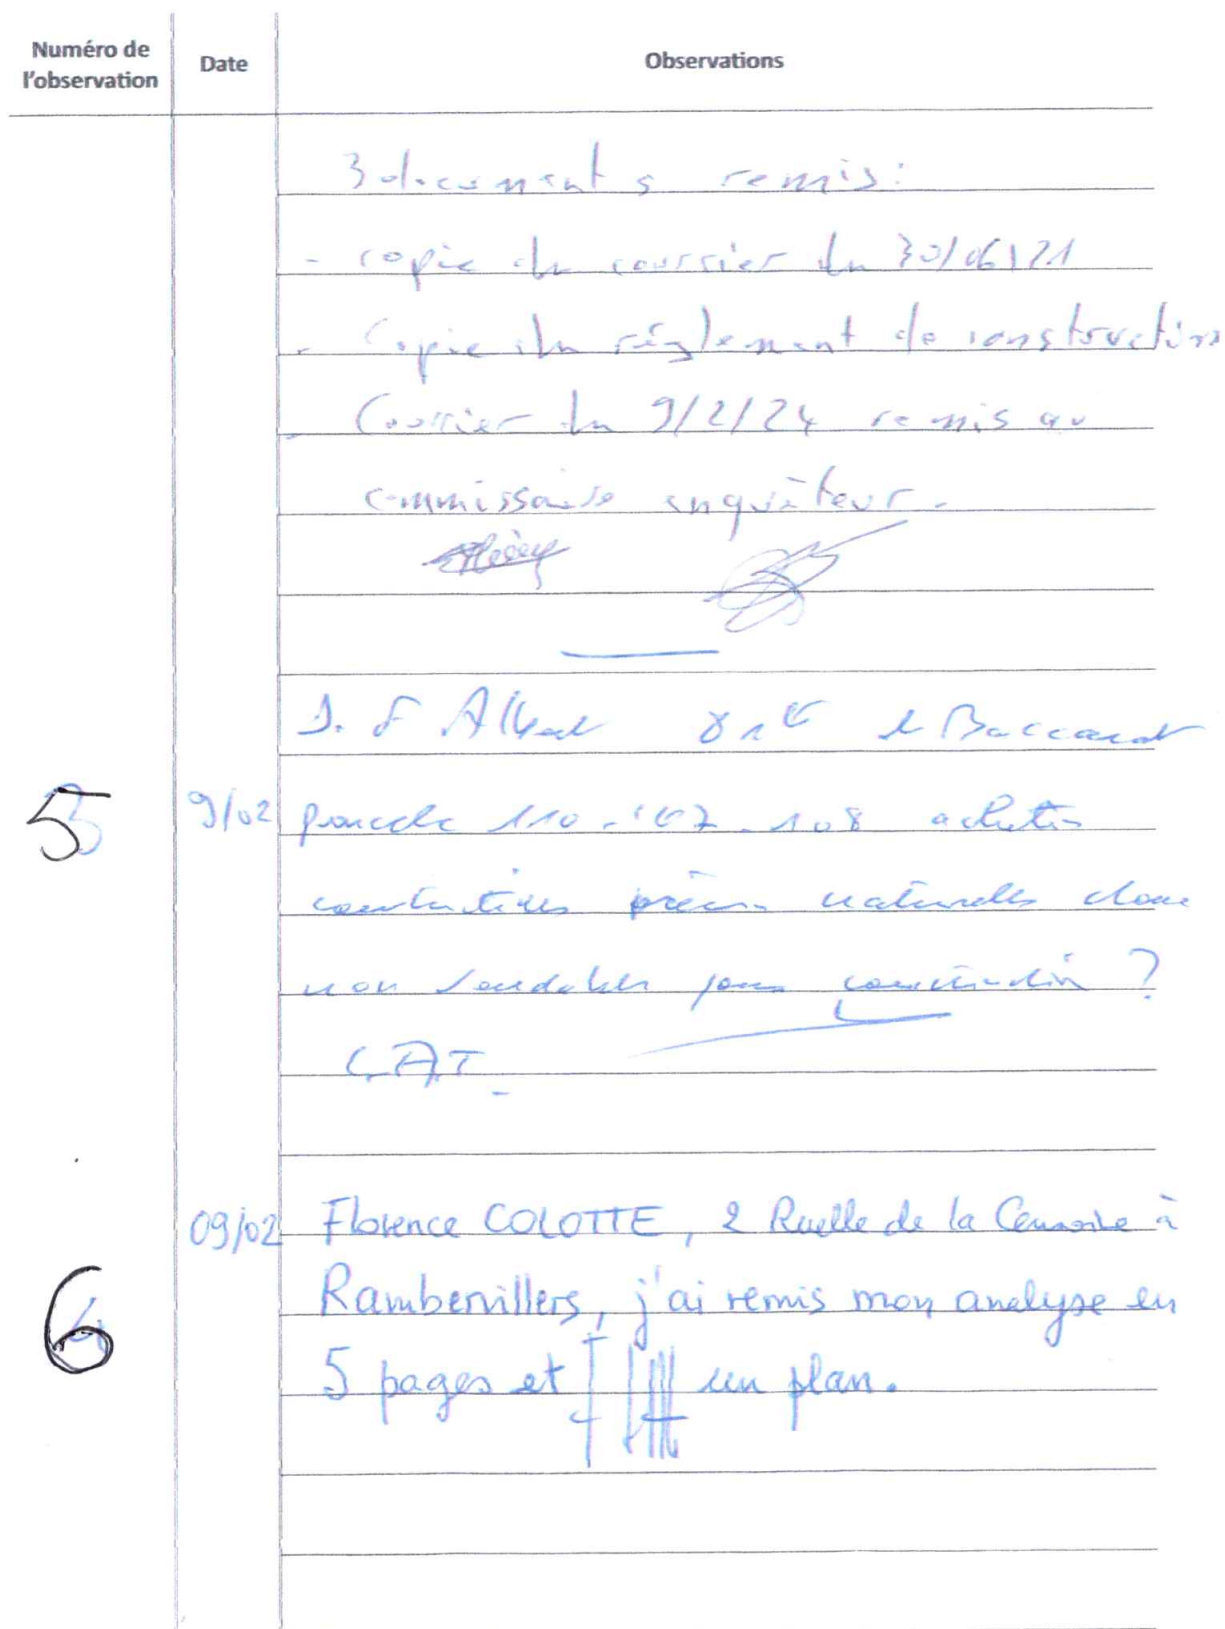 Numéro de
l'observation
Date
Observations
3 documents remis :
- copie du courrier du 30/06/21
- Copie du règlement de construction
- Courrier du 9/2/24 remis au
commissaire enquêteur.
J. F Albert de Baccarat
5
9/02
parcelle 110 - 107 - 108 achetés
naturelles donc
non pour construction ?
C.A.T.
09/02
Florence COLOTTE, 2 Ruelle de la à
6
Rambervillers, j'ai remis mon analyse en
5 pages et un plan.